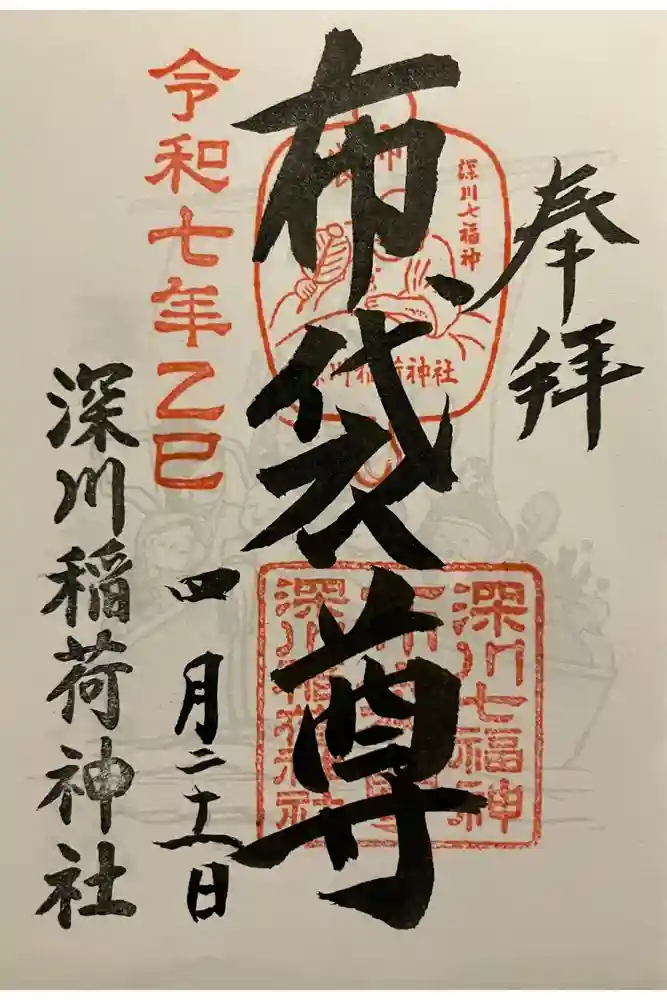 奉拝
布袋尊
令和七年乙巳
四月二十八日
深川稲荷神社
深川七福神
深川稲荷神社
深川七福神
深川稲荷神社